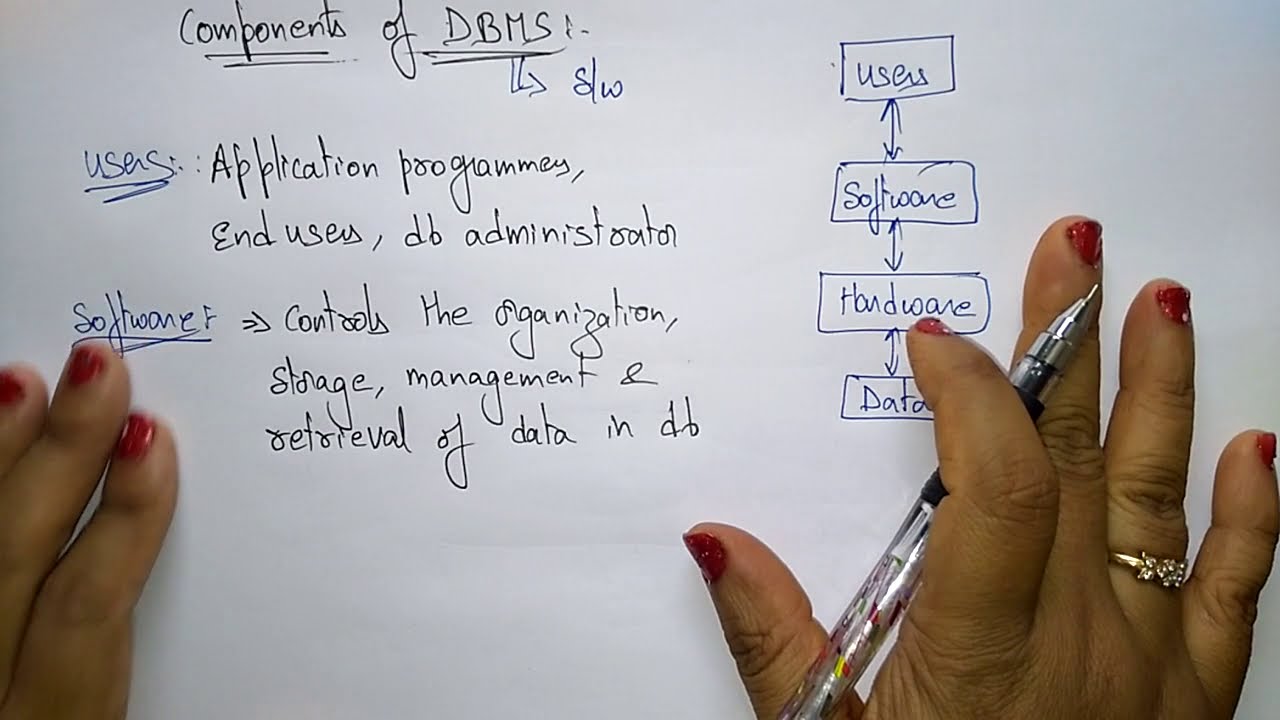 Components of DBMS:-
↳ s/w
users:- Application programmers,
End users, db administrator
Software:- ⇒ Controls the organization,
storage, management &
retrieval of data in db
users
Software
Hardware
Data